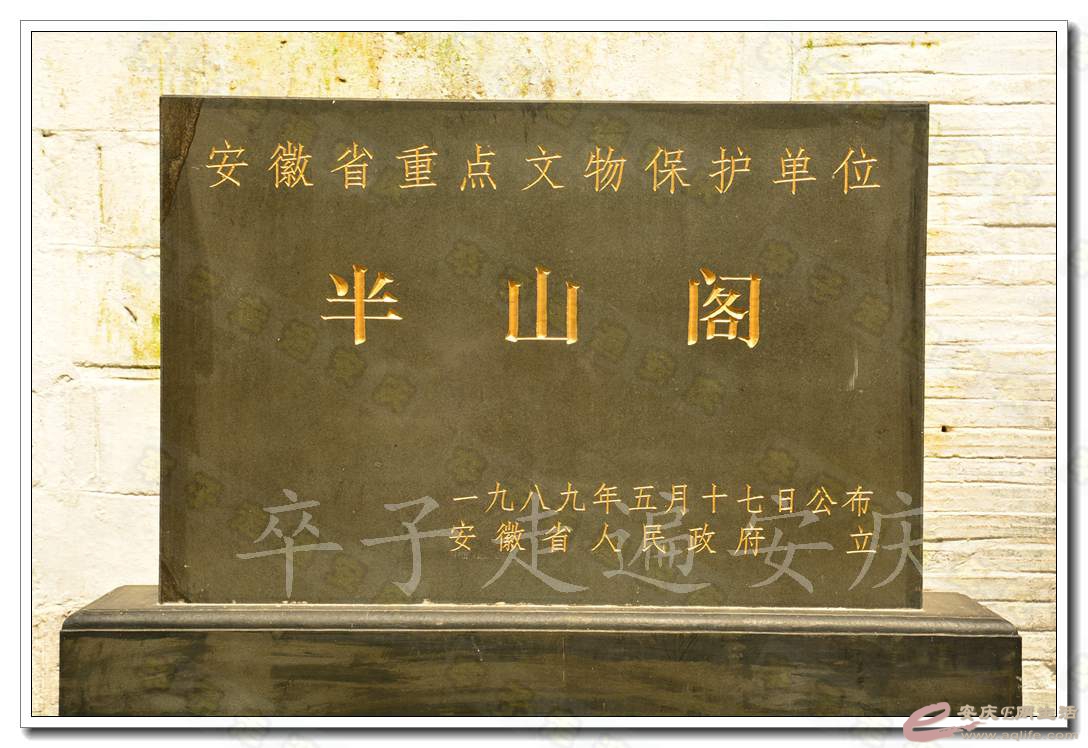 安徽省重点文物保护单位
半山阁
一九八九年五月十七日公布
安徽省人民政府 立
卒子走遍安庆
安庆E网生活
www.aqlife.com